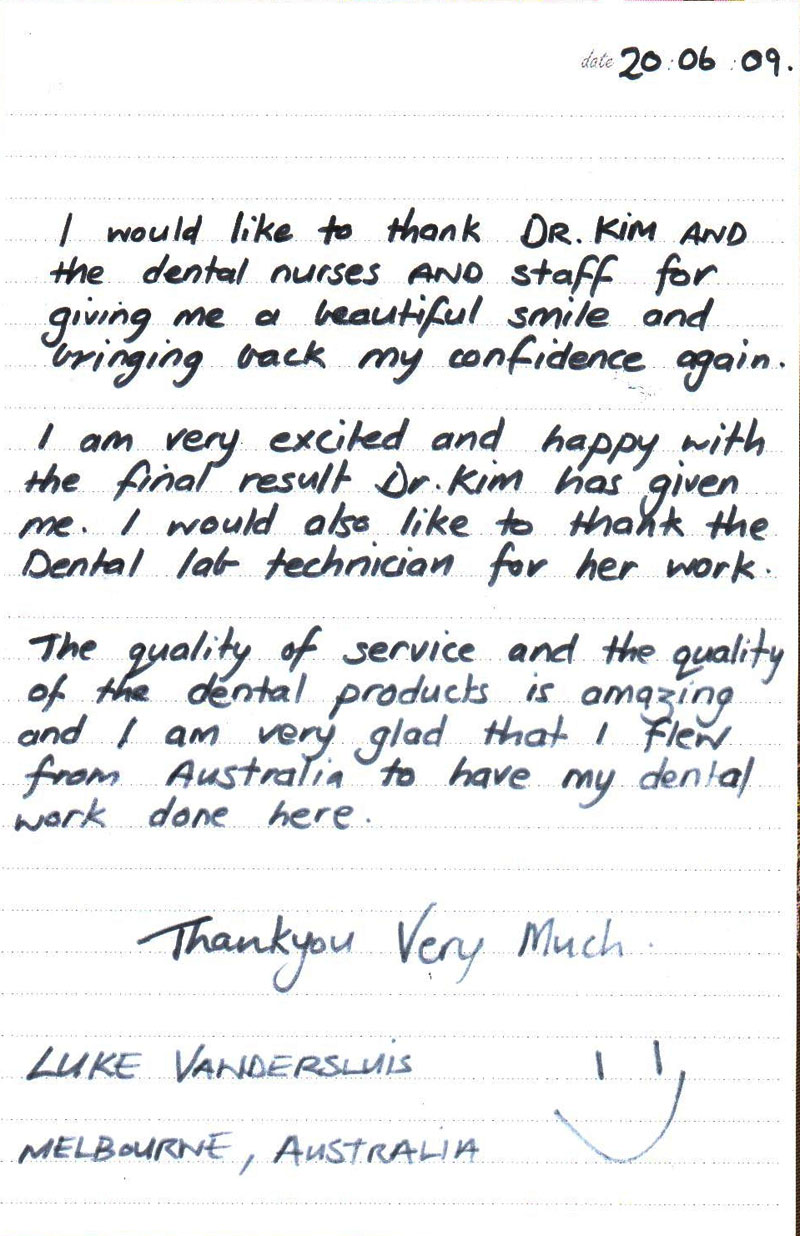 date 20:06:09.
I would like to thank DR. KIM AND
the dental nurses AND staff for
giving me a beautiful smile and
bringing back my confidence again.
I am very excited and happy with
the final result Dr. Kim has given
me. I would also like to thank the
Dental lab technician for her work.
The quality of service and the quality
of the dental products is amazing
and I am very glad that I flew
from Australia to have my dental
work done here.
Thankyou Very Much.
LUKE VANDERSLUIS
MELBOURNE, AUSTRALIA